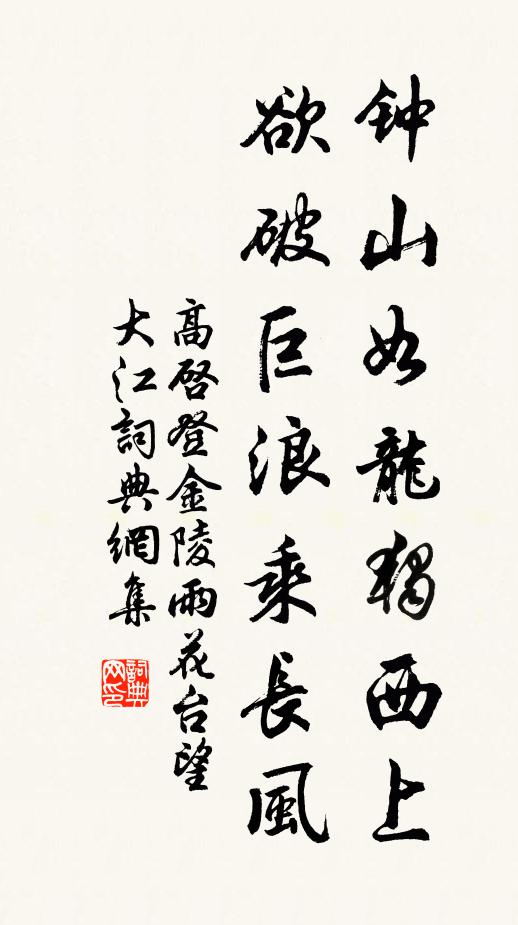 钟山如龍獨西上
欲破巨浪乘長風
高啓登金陵雨花台望
大江詞典網集
詞典网印